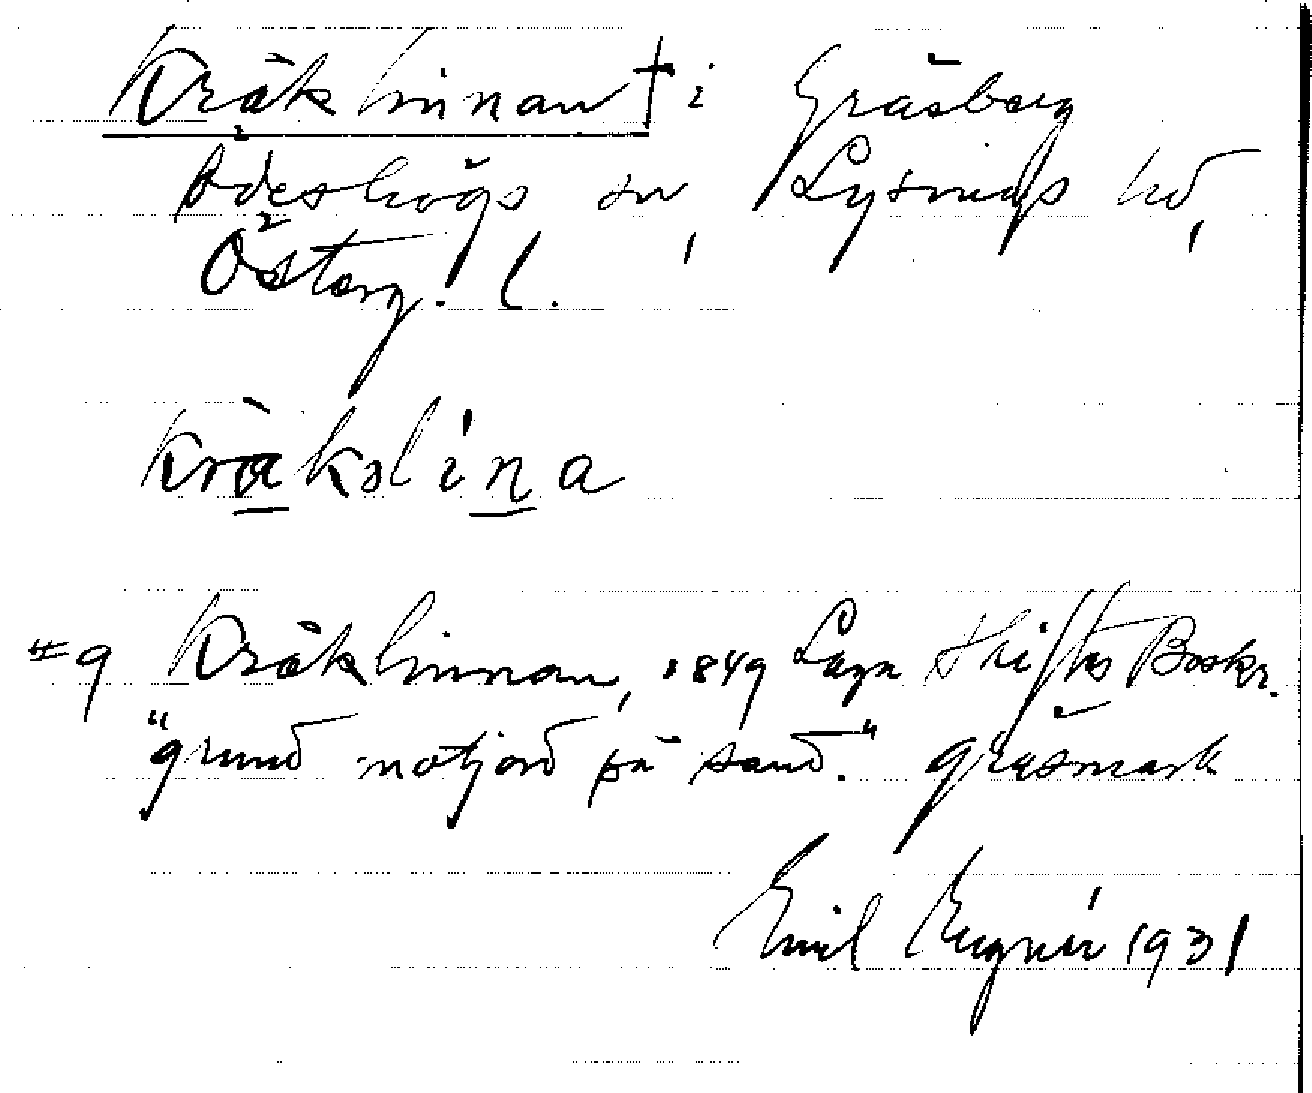 Kråklinnan † i Gräsberg
Ödeshögs sn, Lysings hd,
Österg. l.
kråkslina
#9 Kråklinnan, 1849 Laga Skiftes Beskr.
"grund notjord på sand." gräsmark
Emil Engnér 1931